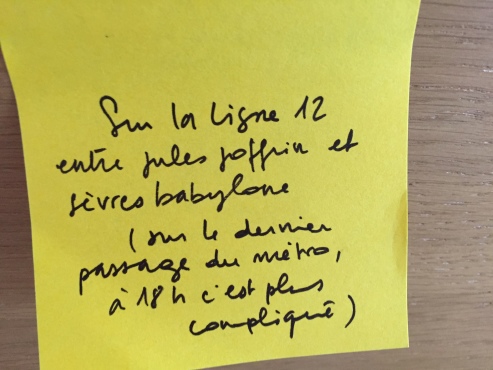 Sur la ligne 12
entre jules joffrin et
sèvres babylone
(sur le dernier
passage du métro,
à 18h c'est plus
compliqué)